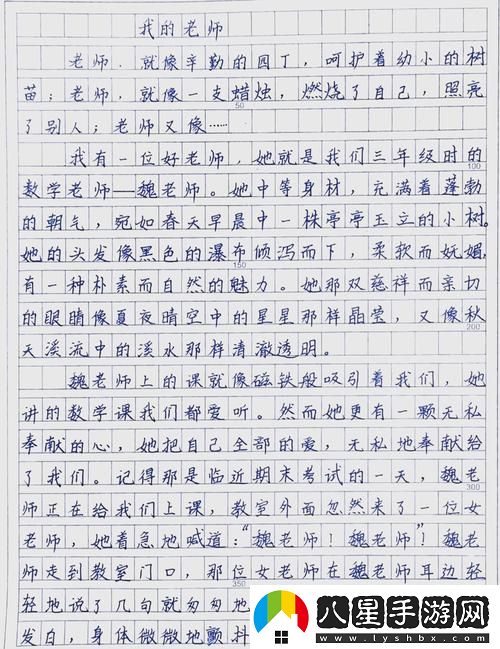 我的老师
老师，就像辛勤的园丁，呵护着幼小的树
苗；老师，就像一支蜡烛，燃烧了自己，照亮
50
了别人；老师又像……
我有一位好老师，她就是我们三年级时的
100
数学老师—魏老师。她中等身材，充满着蓬勃
的朝气，宛如春天早晨中一株亭亭玉立的小树。
她的头发像黑色的瀑布倾泻而下，柔软而妩媚，
150
有一种朴素而自然的魅力。她那双慈祥而亲切
的眼睛像夏夜晴空中的星星那样晶莹，又像秋
200
天溪流中的溪水那样清澈透明。
魏老师上的课就像磁铁般吸引着我们，她
讲的数学课我们都爱听。然而她更有一颗无私
奉献的心，她把自己全部的爱，无私地奉献给
了我们。记得那是临近期末考试的一天，魏老
300
师正在给我们上课，教室外面忽然来了一位女
老师，她着急地喊道：“魏老师！魏老师”！魏老
师走到教室门口，那位女老师在魏老师耳边轻
350
轻地说了几句就匆匆地
发白，身体微微地颤抖
八星手游网
www.lyshbx.com